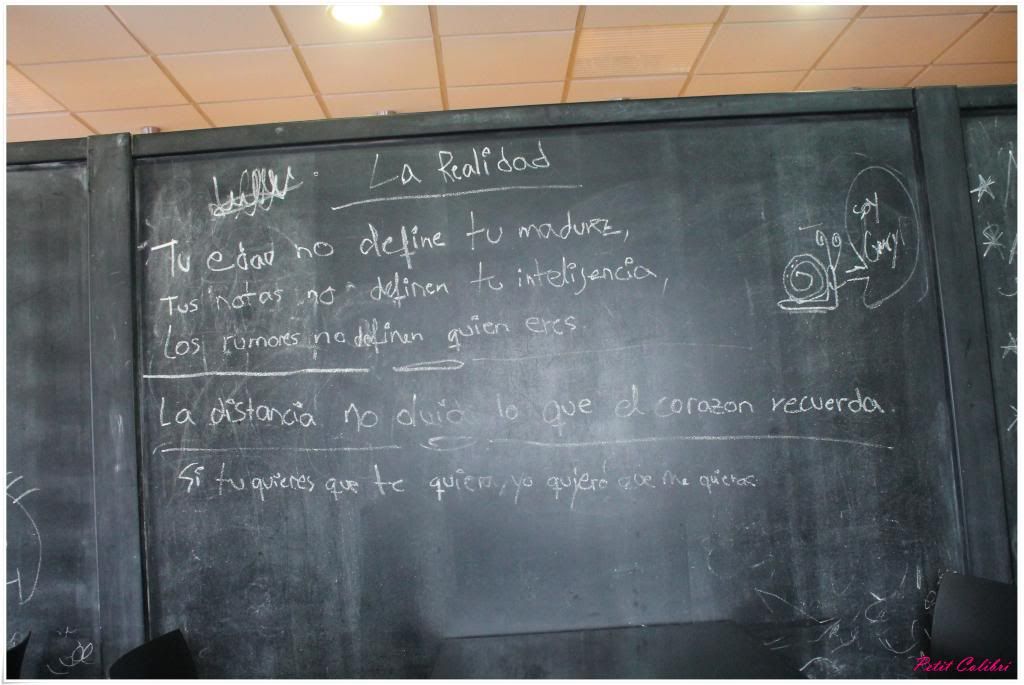 La Realidad
Tu edad no define tu madurez,
Tus notas no definen tu inteligencia,
Los rumores no definen quien eres.
La distancia no olvida lo que el corazon recuerda.
Si tu quieres que te quiera, yo quiero que me quieras.
soy
Petit Colibri